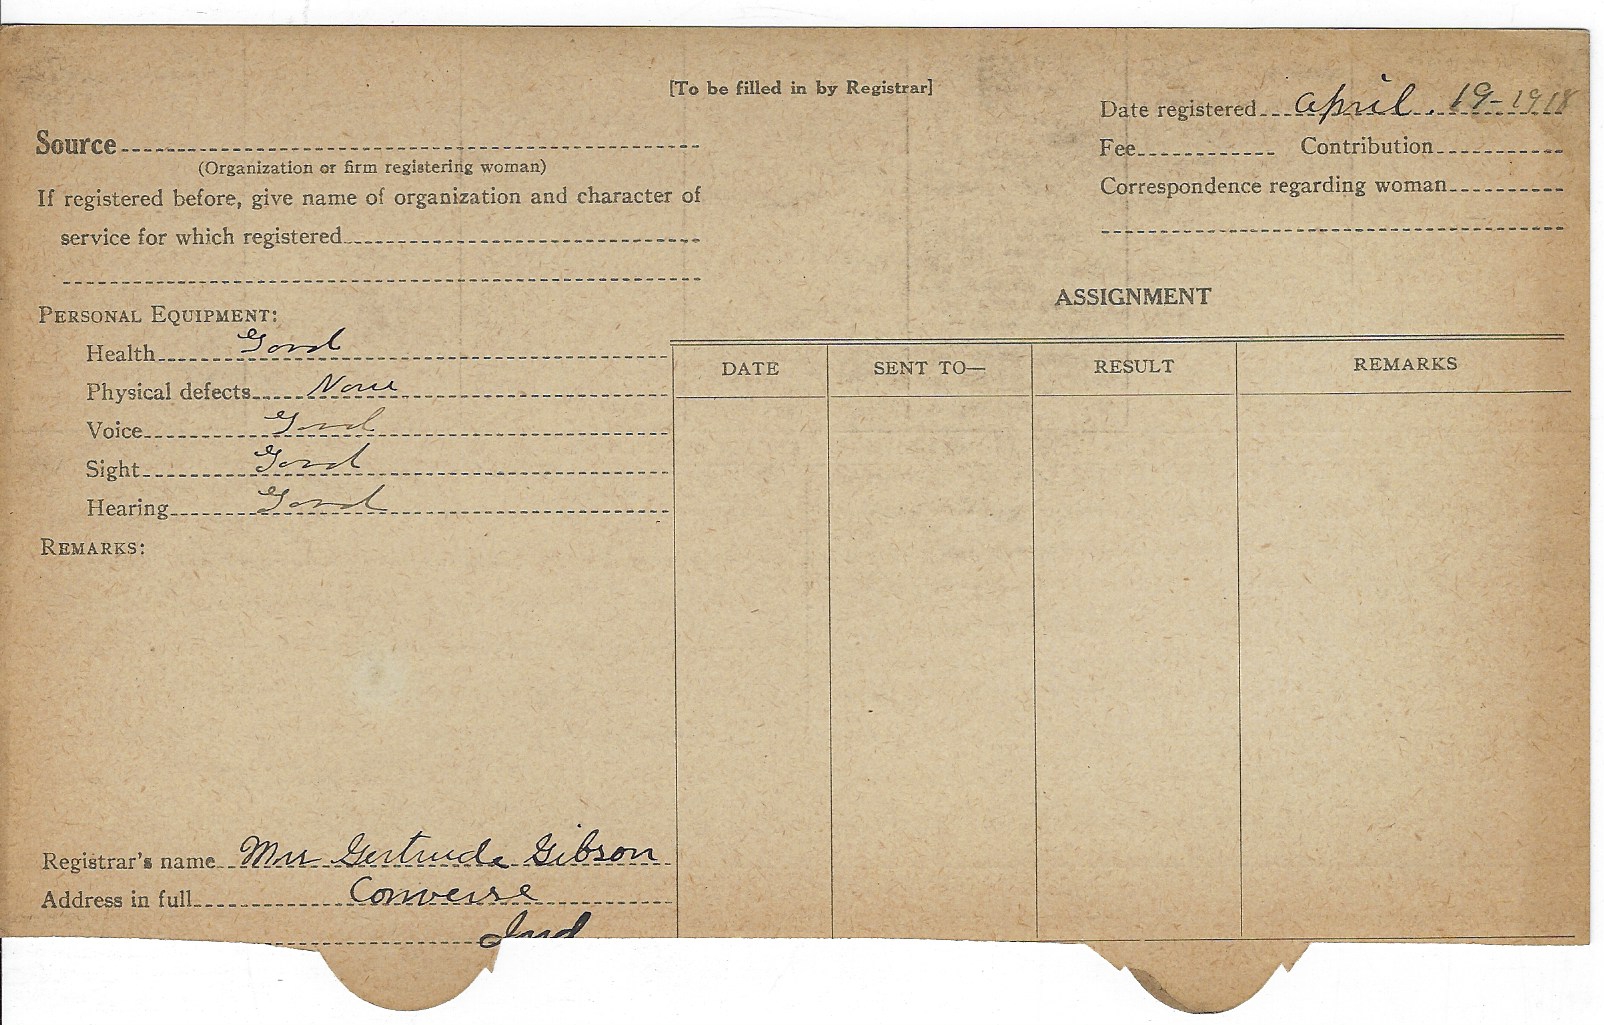 [To be filled in by Registrar]
Date registered April. 19-1918
Source
(Organization or firm registering woman)
Fee Contribution
If registered before, give name of organization and character of
service for which registered
Correspondence regarding woman
ASSIGNMENT
PERSONAL EQUIPMENT:
Health Good
Physical defects None
Voice Good
Sight Good
Hearing Good
REMARKS:
DATE SENT TO— RESULT REMARKS
Registrar's name Mrs Gertrude Gibson
Address in full Converse
Ind